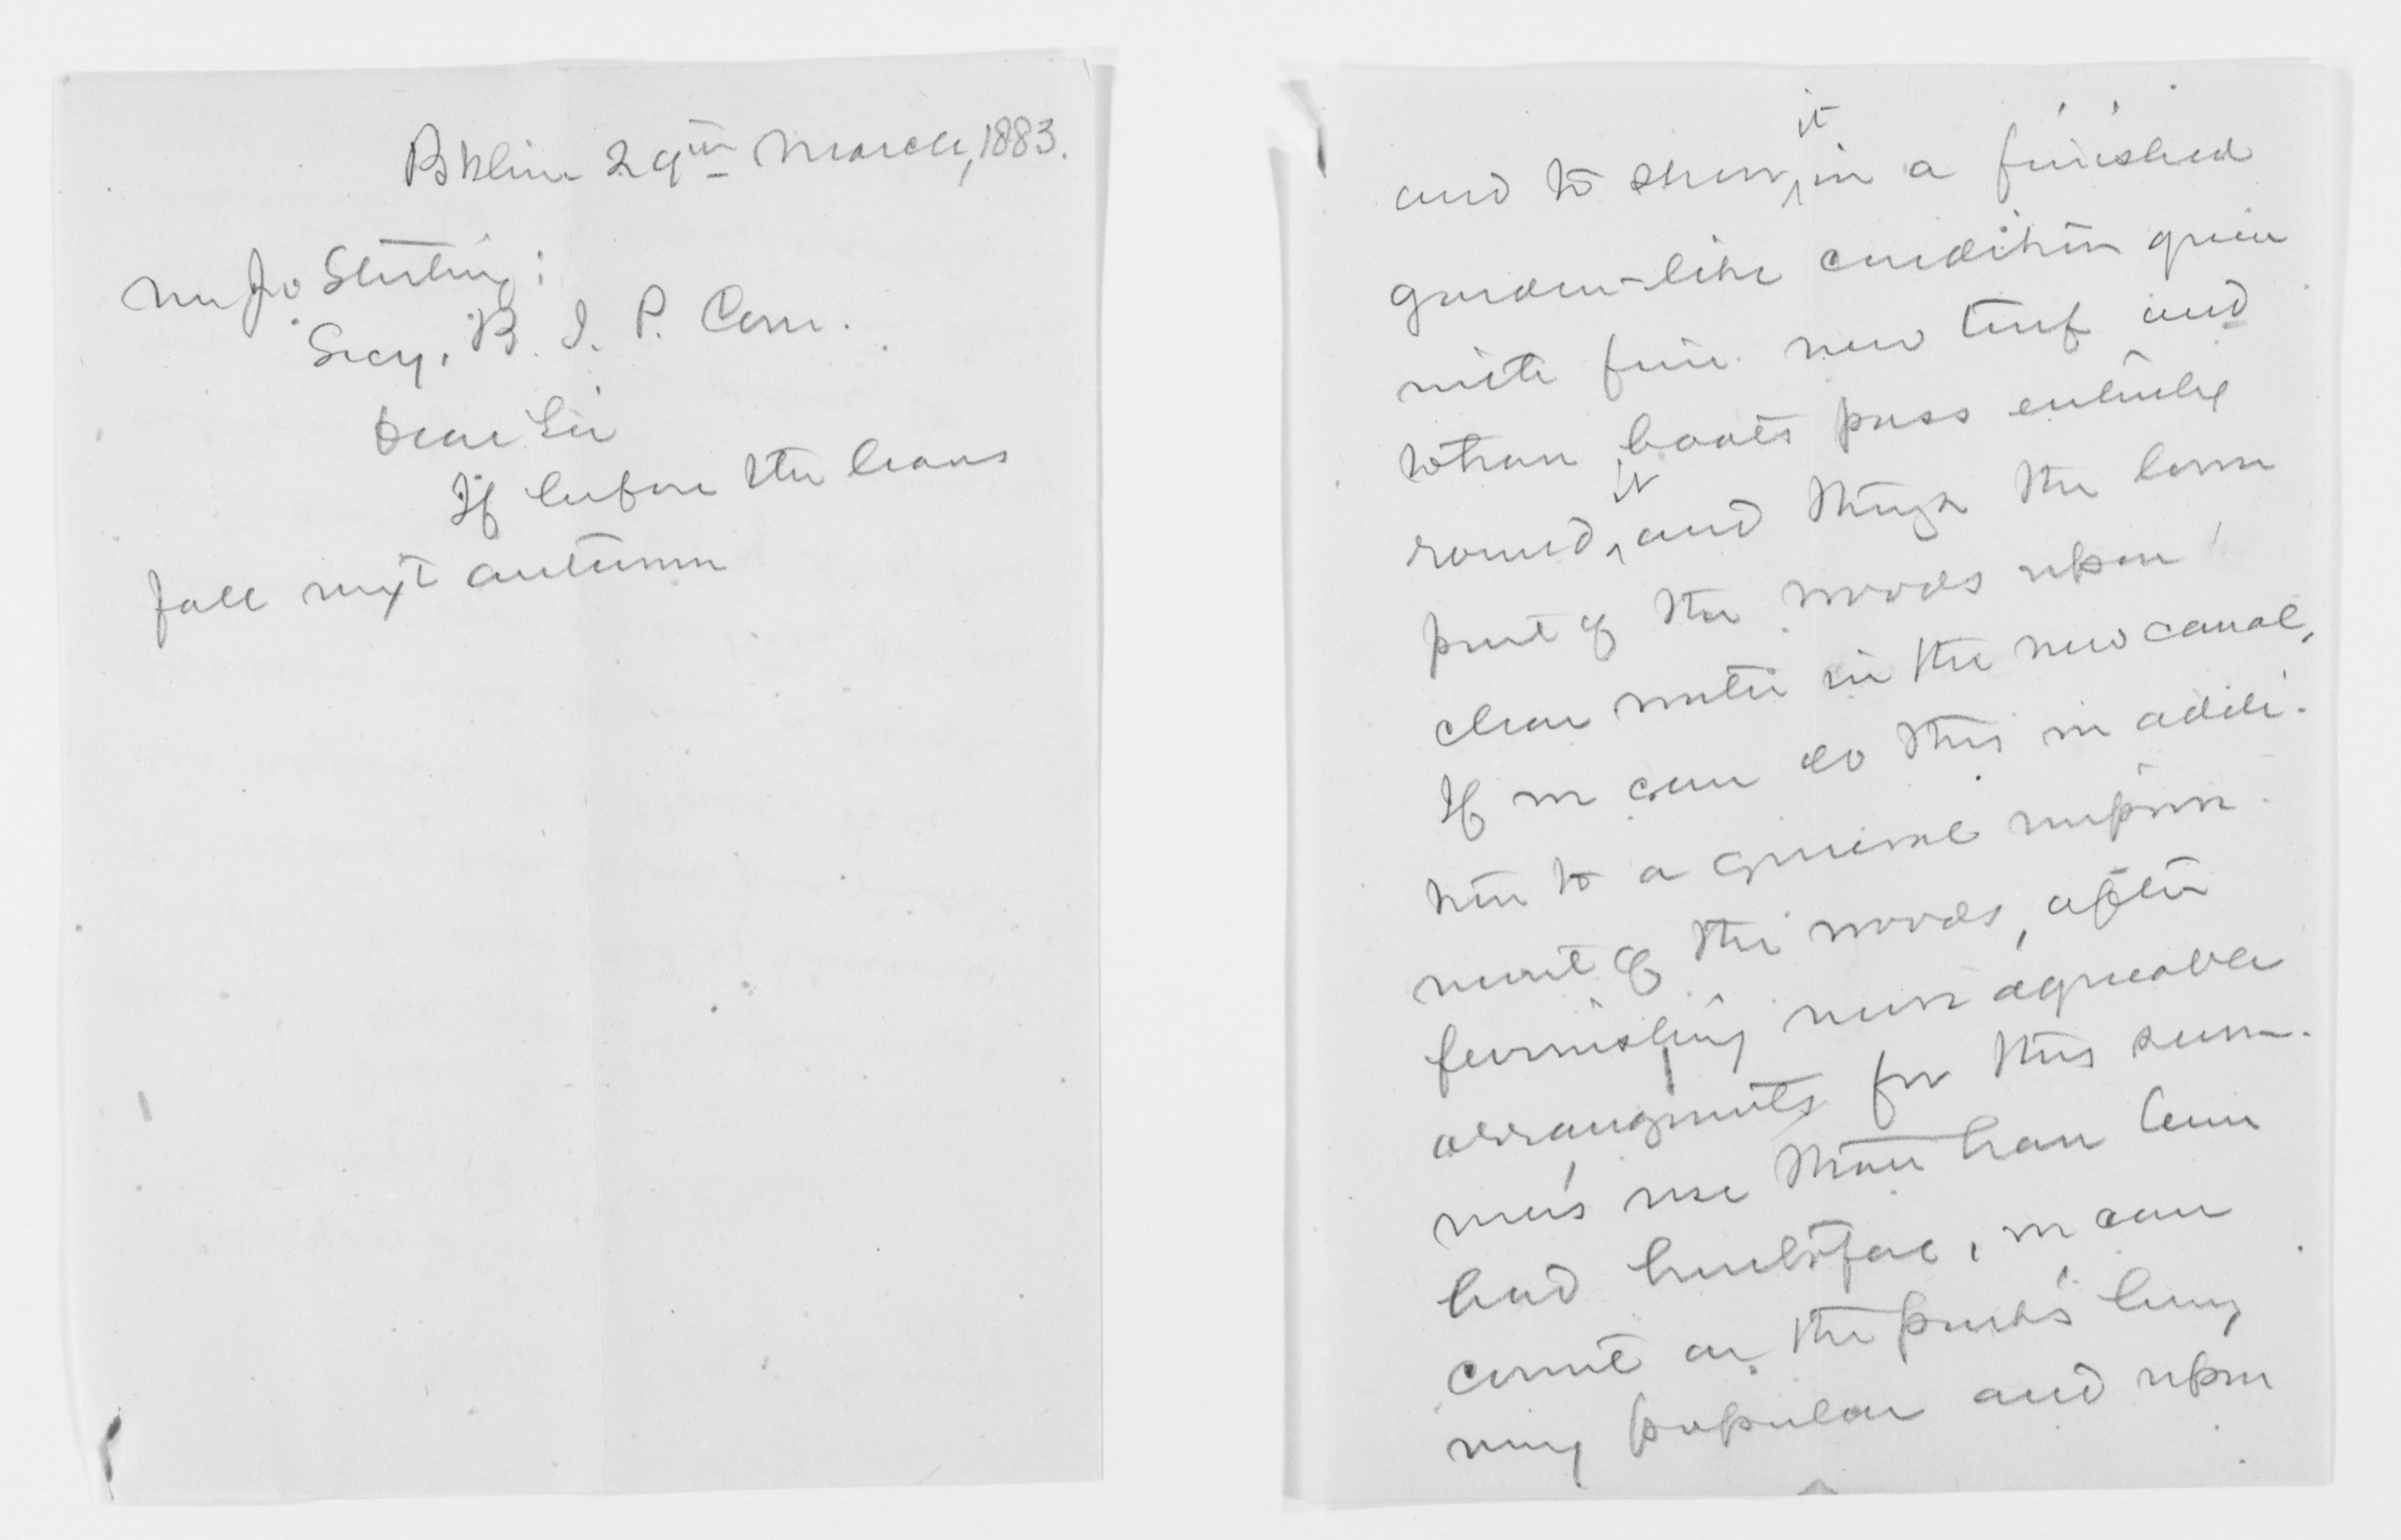 Bkline 29th March, 1883.
Mr Jo Sterling:
Secy, B. I. P. Com.
Dear Sir
If before the leaves
fall next autumn
and to show it in a finished
garden-like condition green
with fine new turf and
to have boats pass entirely
round it, and though the lower
part of the woods upon
clear water in the new canal,
If we can do this in addi-
tion to a general improve-
ment of the woods, after
furnishing more agreeable
arrangments for this sum-
mer's use than have been
had heretofore, we can
count on the park's being
very popular and upon